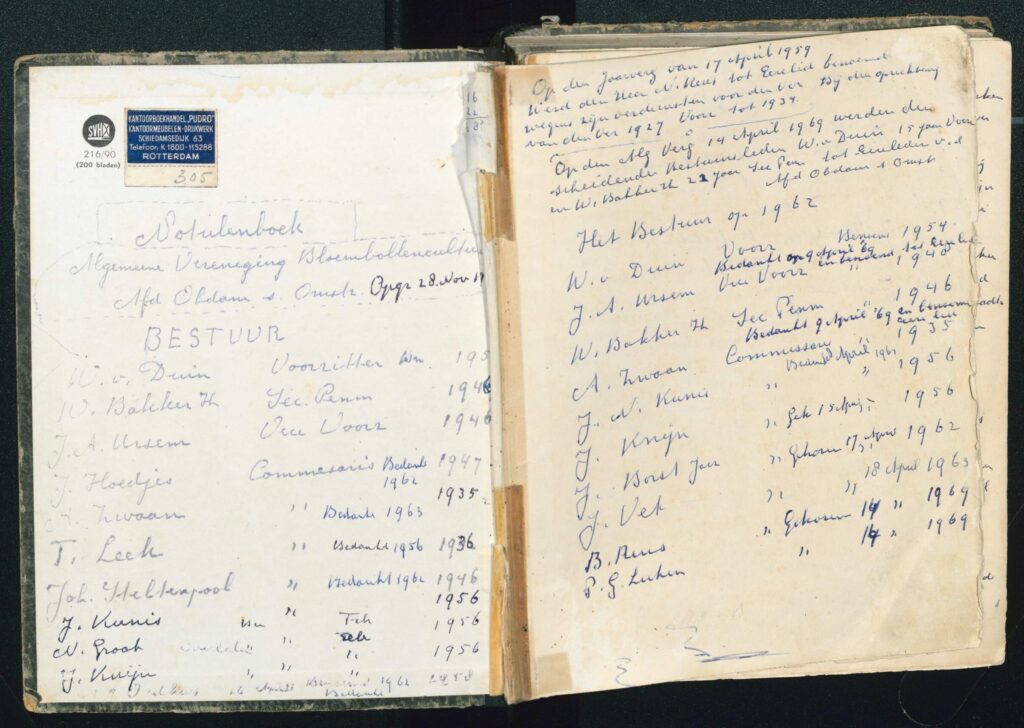 SVH
216/90
(200 bladen)
KANTOORBOEKHANDEL "PUDRO"
KANTOORMEUBELEN-DRUKWERK
SCHIEDAMSEDIJK 63
Telefoon: K 1800-115288
ROTTERDAM
305
Notulenboek
Algemeene Vereniging Bloembollencultuur
Afd Obdam s. Omstr. Opgr 28 Nov 19
BESTUUR
W. v. Duin Voorzitter 195
W. Bakker Zn Sec. Penm 1946
J. A. Ursem Vice Voorz 1946
J. Hoedjes Commesaris Bedankt 1962 1947
A. Zwaan " Bedankt 1963 1935
T. Leek " Bedankt 1956 1936
Joh. Steltenpool " Bedankt 1962 1946
J. Kunis " 1956
N. Groot " 1956
J. Knijn " " 1956
1962 1958
Bedankt
Op den Jaarverg van 17 April 1959
Werd den Heer N. tot Erelid benoemd
wegens zijn verdiensten voor den Ver Bij den oprichting
van den Ver 1927 Voorz tot 1934.
Op den Alg Verg 14 April 1969 werden den
scheidende Bestuursleden W. v Duin 15 jaar Voorz
en W. Bakker Zn 22 jaar Sec Penm tot Ereleden v. d
Afd Obdam s Omstr
Het Bestuur op 1962
W. v Duin Voorz Benoemd 1954
Bedankt op 9 April '69 en benoemd tot Erelid
J. A. Ursem Vice Voorz " 1946
W. Bakker Zn Sec Penm " 1946
Bedankt 9 April '69 en benoemd
A. Zwaan Commissaris " 1935
Bedankt April 1963
J. N. Kunis " " 1956
J. Knijn " 1956
J. Borst Jacz " Gekozen 17 April 1962
J. Vek " " 18 April 1963
B. " Gekozen 14 " 1969
P. G. " 14 " 1969